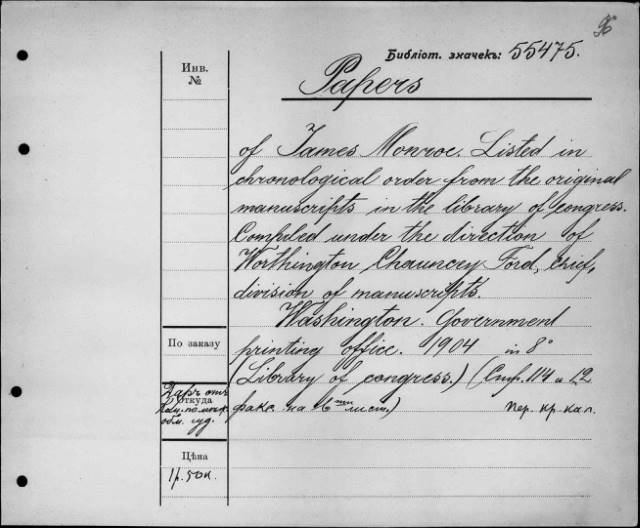 96
Библіот. значекъ: 55475.
Инв.
№
Papers
of James Monroe. Listed in
chronological order from the original
manuscripts in the library of congress.
Compiled under the direction of
Worthington Chauncey Ford, chief,
division of manuscripts.
Washington. Government
По заказу
printing office. 1904 in 8°
(Library of congress.) (Стр. 114 и 12
Даръ отъ
Откуда
факс. на 6ти лист.) пер. кр. кал.
обл. суд.
Цѣна
1 р. 50 к.